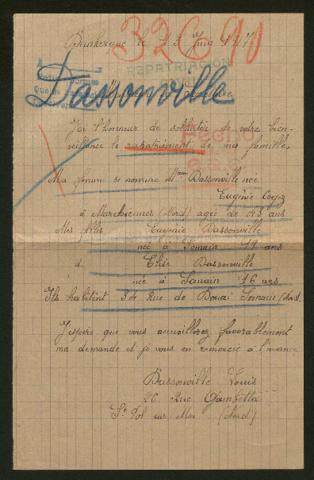 32690
Dunkerque le 25 Juin 1917
REPATRIATION
Dassonville
J'ai l'honneur de solliciter de votre bien-
veillance le rapatriement de ma famille.
Ma femme se nomme Mme Dassonville née
Eugénie
à Marchiennes (Nord) agée de 43 ans
Mes filles Eugénie Dassonville
née à Somain 14 ans
d. Elise Dassonville
née à Somain 16 ans
Ils habitent Rue de Douai Somain (Nord.
J'espère que vous accueillerez favorablement
ma demande et je vous en remercie à l'avance
Dassonville Louis
26 Rue Gambetta
St Pol sur Mer (Nord)